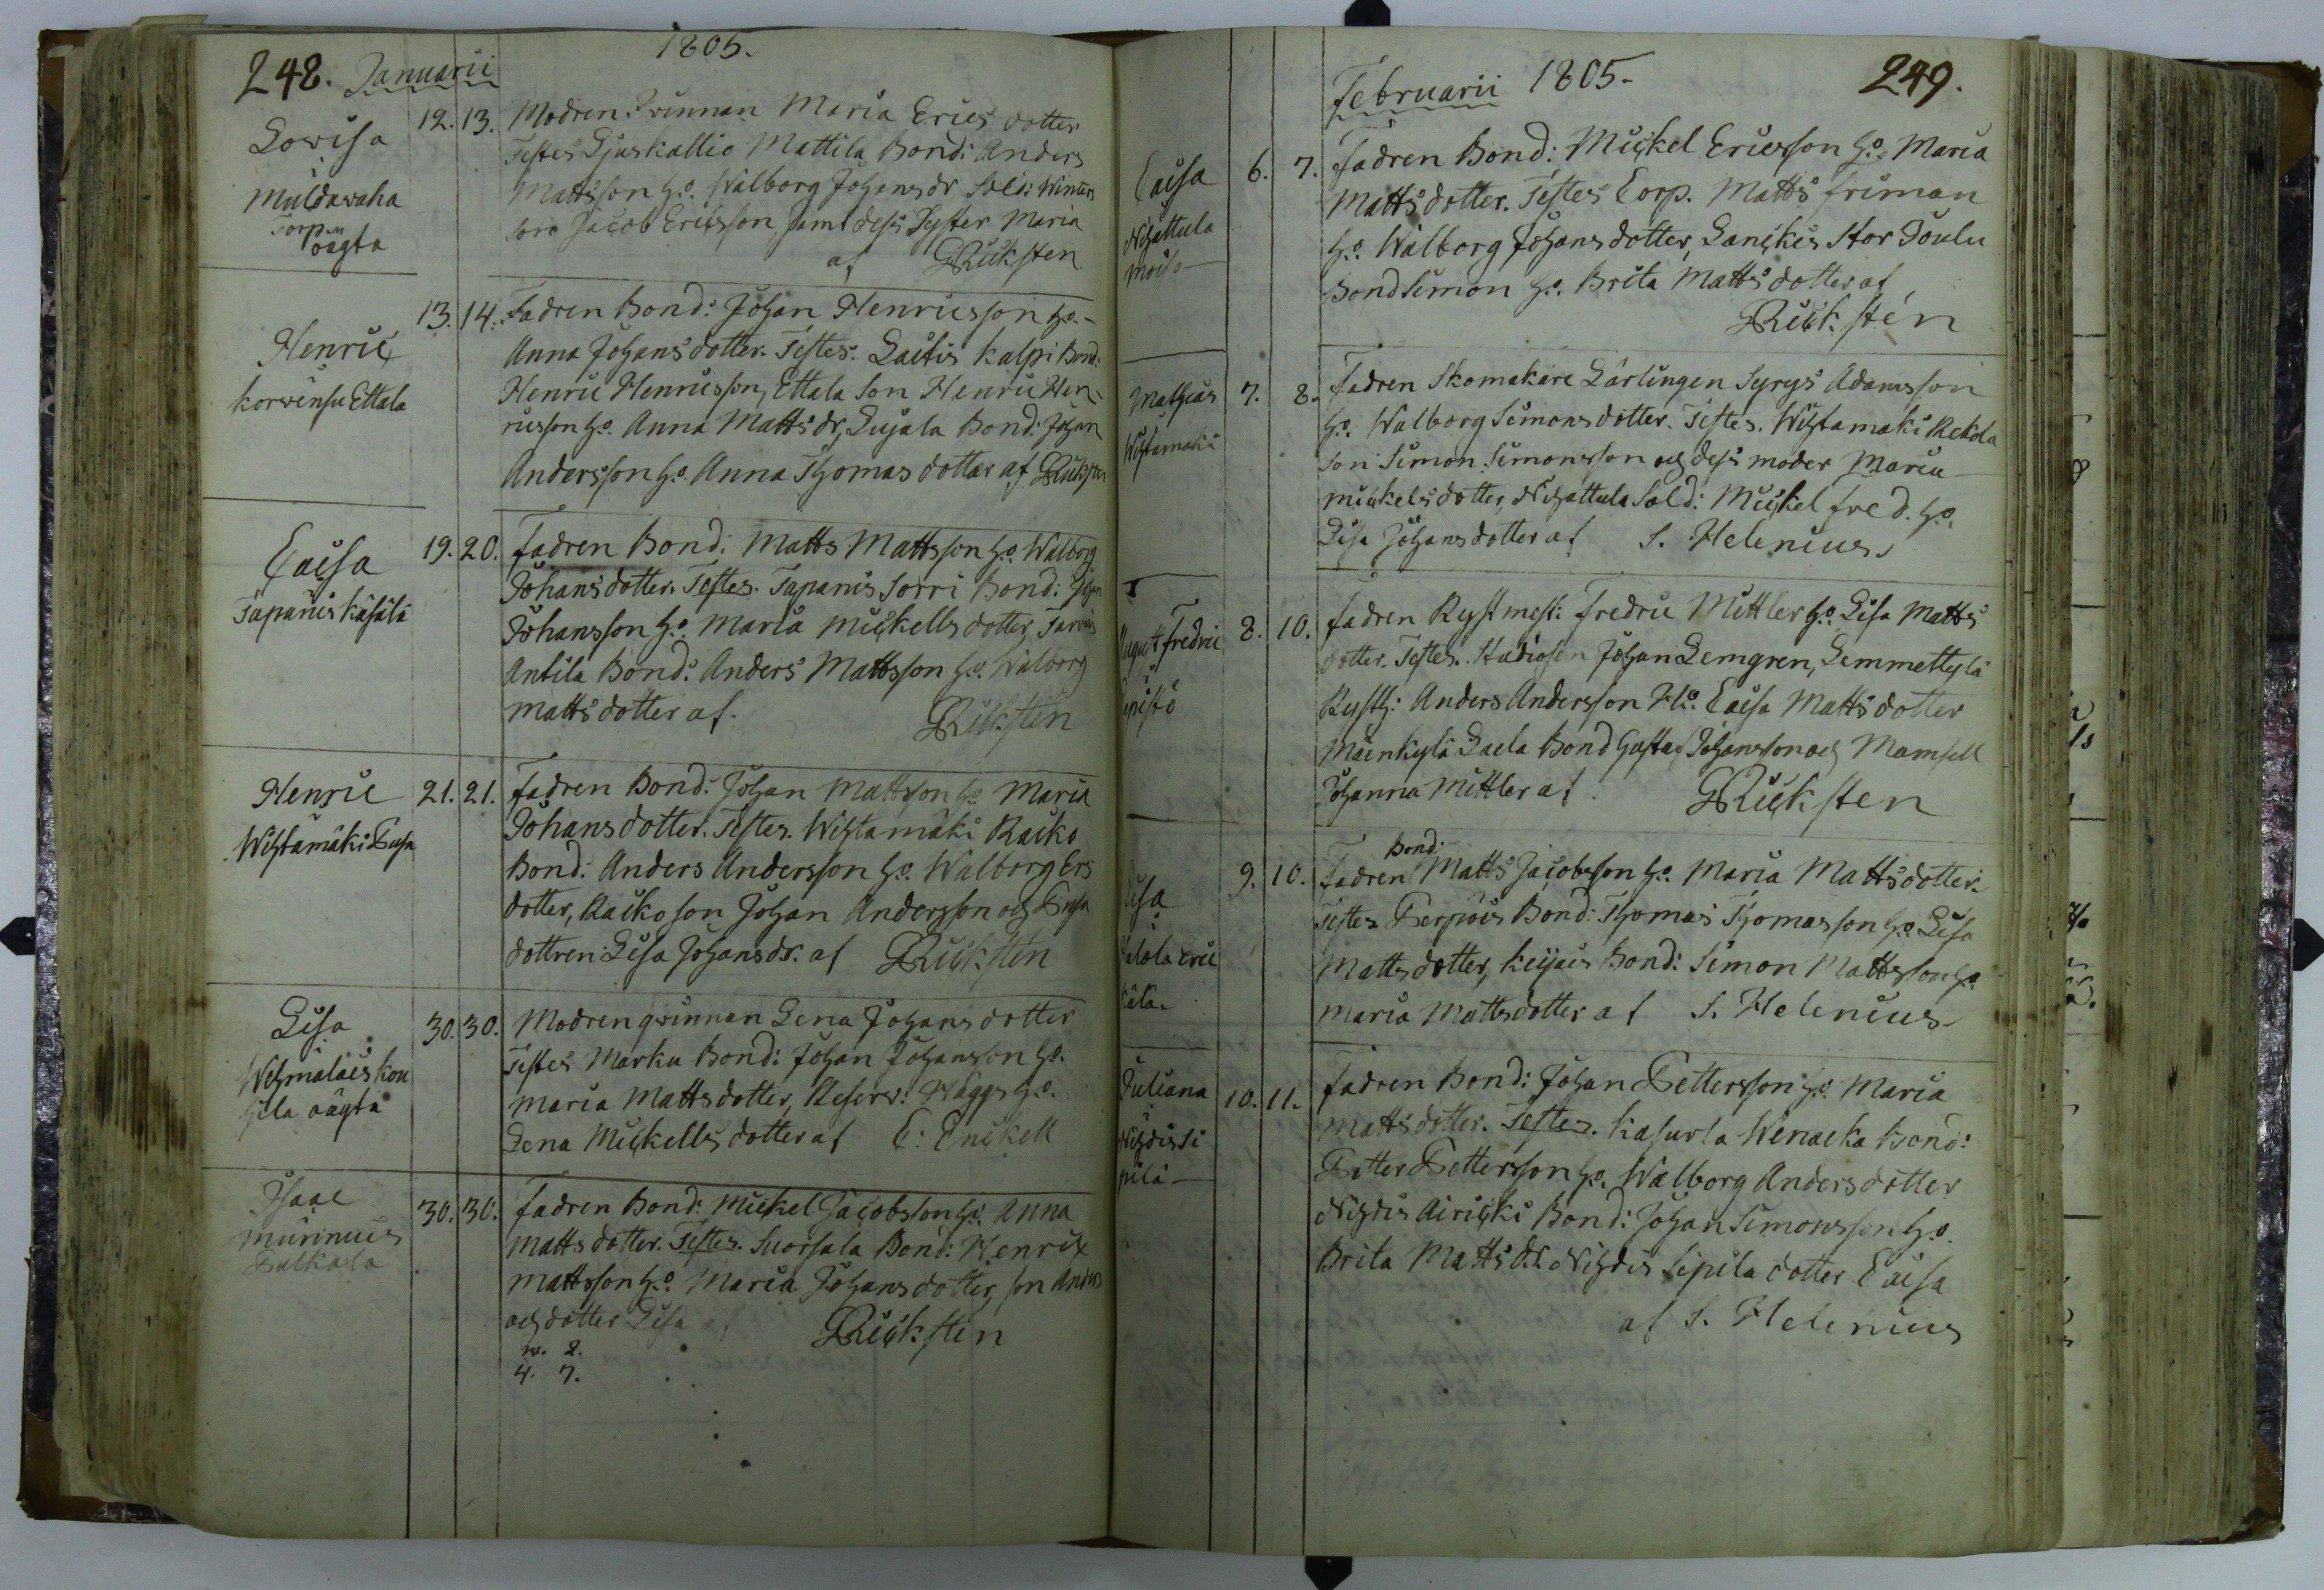 248. Januarii
1805.
Lovisa
Muldawaha
Torp.
oägta
12. 13. Modren Qvinnan Maria Erics dotter
Testes Ljuskallio Mattila Bond: Anders
Mattsson h:o Walborg Johans dr Sold: Winters
son Jacob Ericsson samt dess Syster Maria
af GRickstén
Henric
Korvensu Ettala
13. 14. Fadren Bond: Johan Henricsson h:o
Anna Johans dotter. Testes. Laitis Kalpi Bond:
Henric Henricsson, Ettala Son Henric Hen-
ricsson h:o Anna Matts dr, Sujala Bond: Johan
Andersson h:o Anna Thomas dotter af GRickstén
Caisa
Tapanis Käsälä
19. 20. Fadren Bond: Matts Mattsson h:o Walborg
Johans dotter. Testes. Tapanis Sorri Bond: Johan
Johansson h:o Maria Mickells dotter,
Antila Bond: Anders Mattsson h:o Walborg
Matts dotter af. GRickstén
Henric
Wihtamäki Pusa
21. 21. Fadren Bond: Johan Mattsson h:o Maria
Johans dotter. Testes. Wihtamäki Raiko
Bond: Anders Andersson h:o Walborg Ers
dotter, Raiko son Johan Andersson och Pusa
dottren Lisa Johans dr. af GRickstén
Lisa
i
Wehmalais Kou
hila oägta
30. 30. Modren qvinnan Lena Johans dotter
Testes Marku Bond: Johan Johansson h:o
Maria Matts dotter, Reserv: Häggs h:o
Lena Mickells dotter af C: Enckell
Isaac
Murinuis
Pulkala
30. 30. Fadren Bond: Mickel Jacobsson h:o Anna
Matts dotter. Testes. Suorsala Bond: Henrik
Mattsson h:o Maria Johans dotter, son Anders
och dotter Lisa af GRickstén
2.
4. 7.
Februarii 1805. 249.
Caisa
Nihattula
6. 7. Fadren Bond: Mickel Ericsson h:o Maria
Matts dotter. Testes Corp. Matts friman
h:o Walborg Johans dotter, Lanckis Stor Joulu
Bond Simon h:o Brita Matts dotter af
GRickstén
Mathias
Wihtamäki
7. 8. Fadren Skomakare Lärlingen Syrys Adamsson
h:o Walborg Simons dotter. Testes. Wihtamäki Rekola
son Simon Simonsson och dess moder Maria
Mickels dotter, Nihattula Sold: Mickel fred. h:o
Lisa Johans dotter af S. Helenius
August Fredric
i
8. 10. Fadren Rystmest: Fredric Mittler h:o Lisa Matts
dotter. Testes. Studiosen Johan Lemgren, Lemmettylä
Rysth: Anders Andersson H:o Caisa Matts dotter
Mäenkylä Laela Bond Gustaf Johansson och Mamsell
Johanna Mittler af GRickstén
9. 10. Fadren Bond: Matts Jacobsson h:o Maria Matts dotter.
Testes Perpois Bond: Thomas Thomasson h:o Lisa
Matts dotter, Keijais Bond: Simon Mattsson h:o
Maria Matts dotter af S. Helenius
Juliana
i
Nihdis Si
pilä
10. 11. Fadren Bond: Johan Pettersson h:o Maria
Matts dotter. Testes. Kasurla Wenacka Bond:
Petter Pettersson h:o Walborg Anders dotter
Nihdis Airicki Bond: Johan Simonsson h:o
Brita Matts dr. Nihdis Sipila dotter Caisa
af S. Helenius